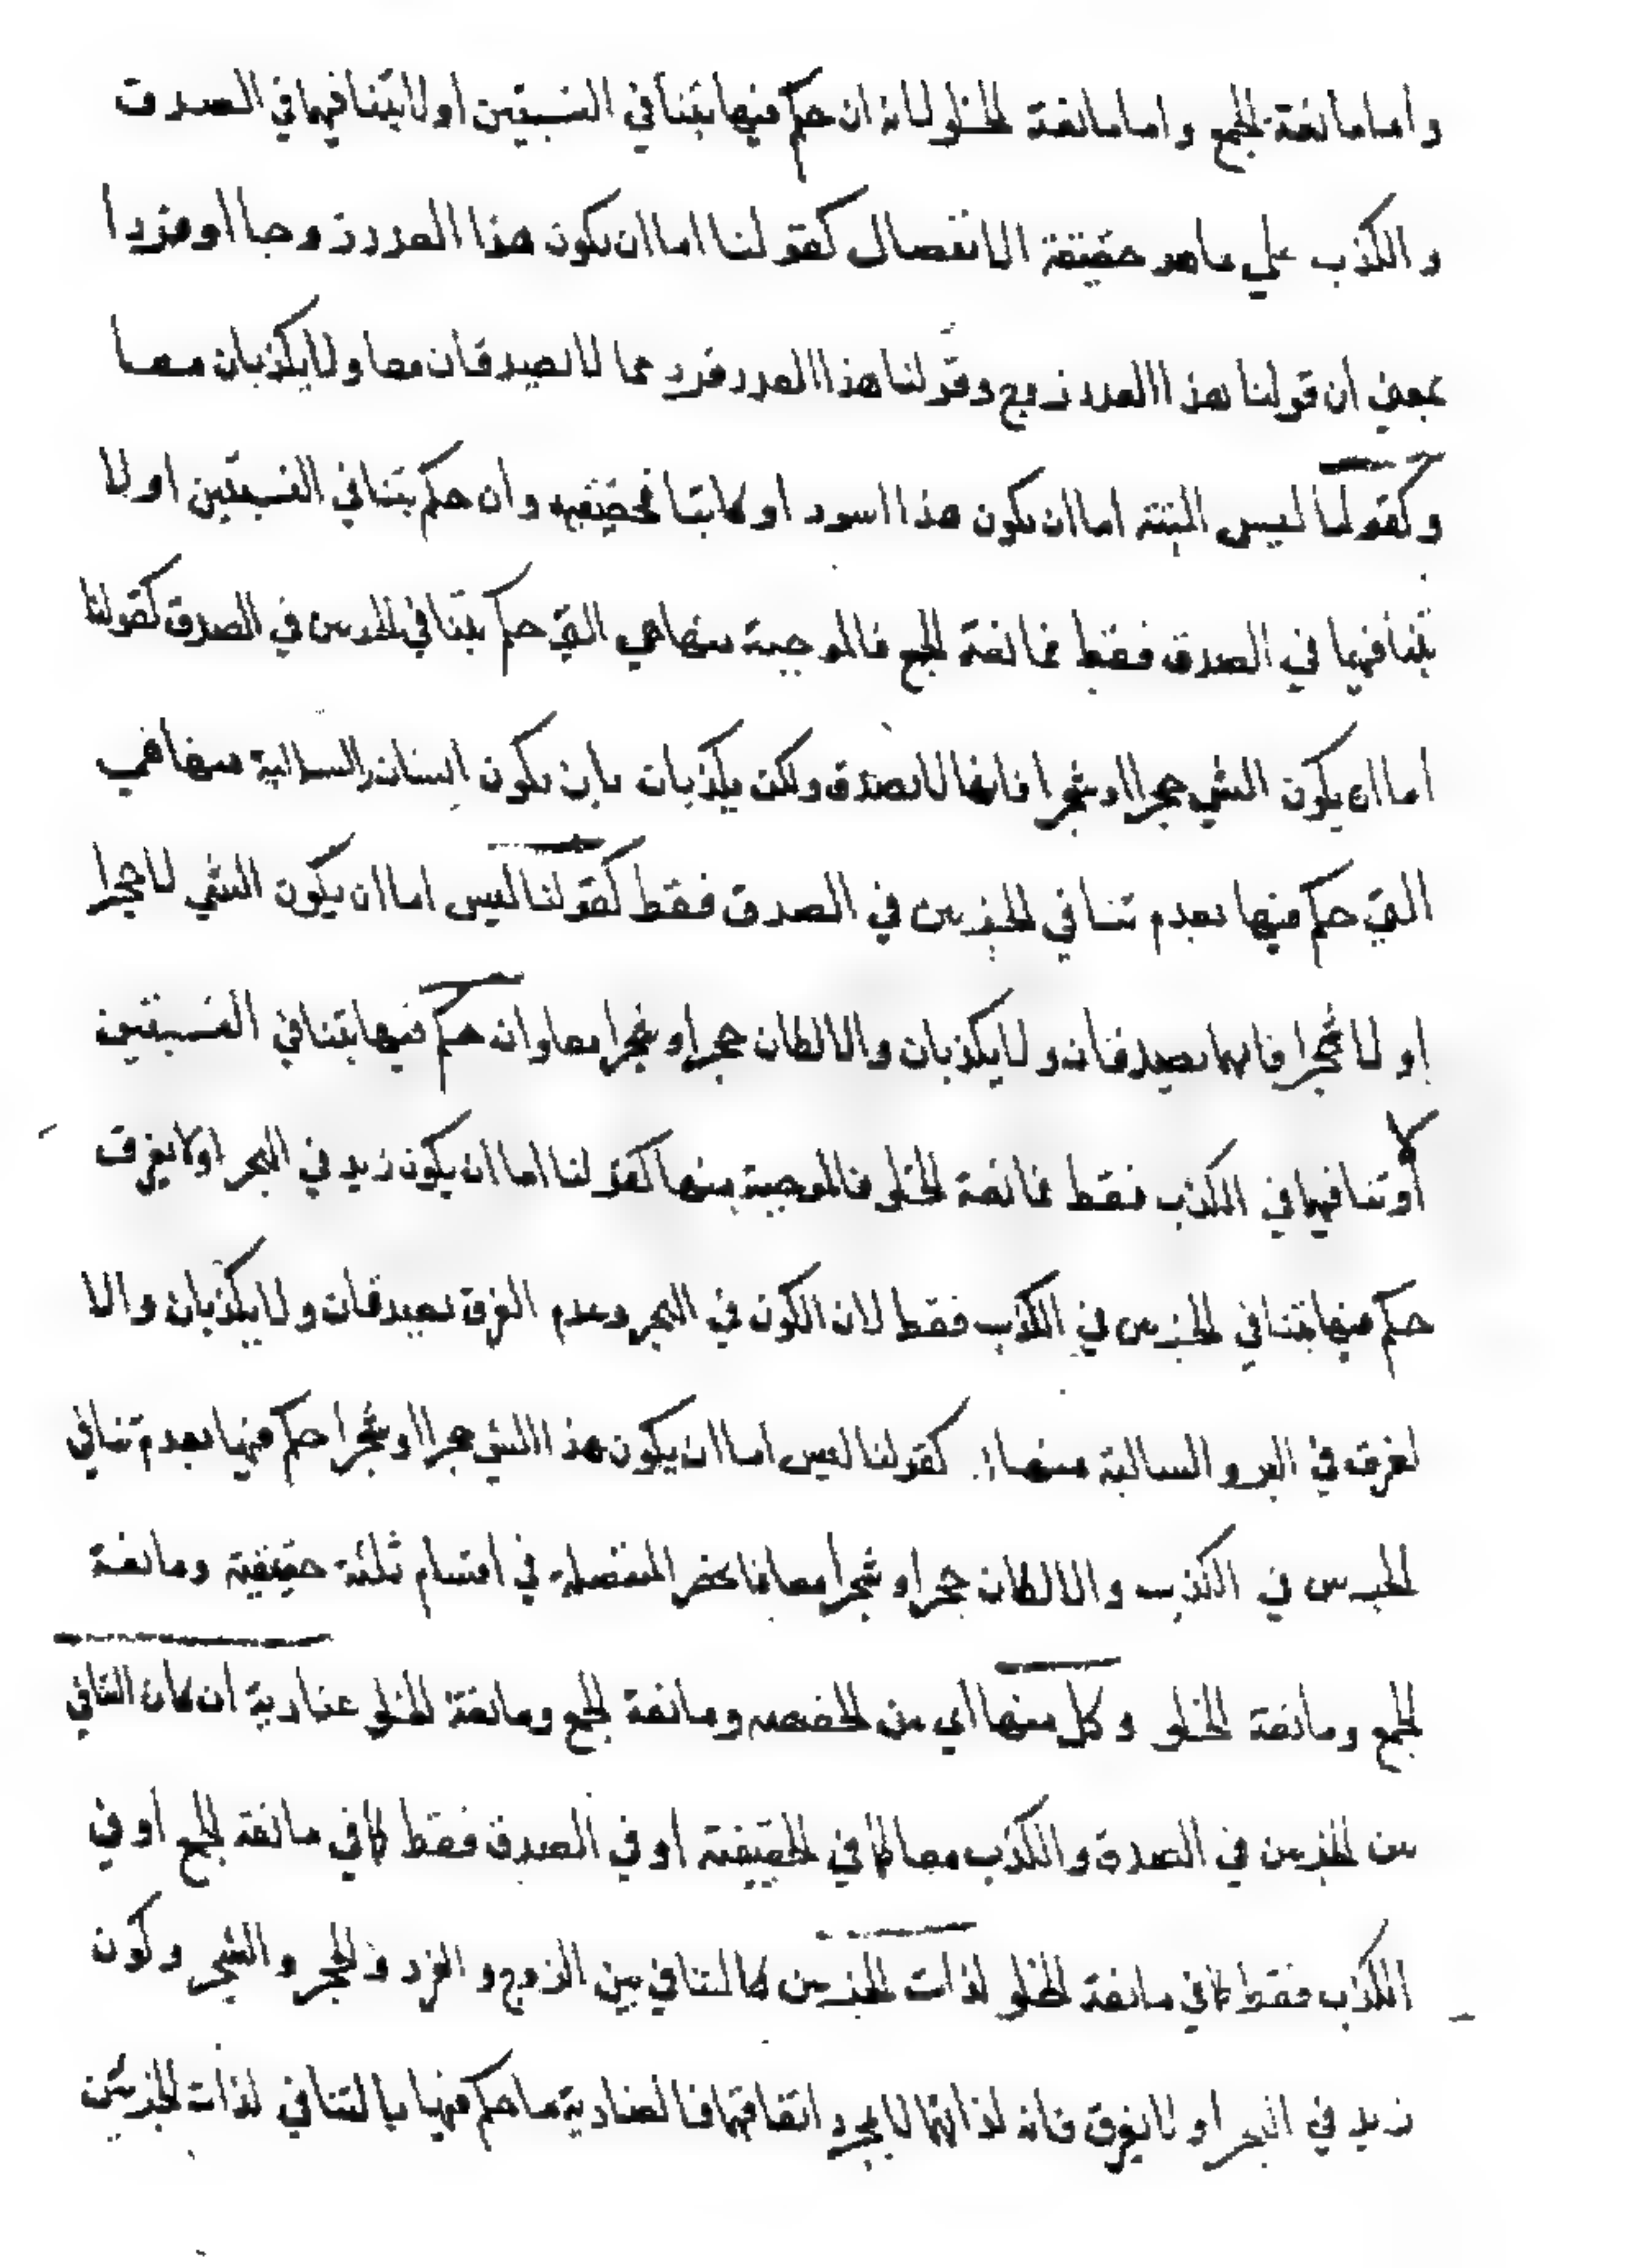 واما مانعة الجمع واما مانعة الخلو لانه ان حكم فيها بتنافي النسبتين او لا بتنافيهما في الصدق
والكذب علي ما هو حقيقة الانفصال كقولنا اما ان يكون هذا العدد زوجا او فردا
بمعني ان قولنا هذا العدد زوج وقولنا هذا العدد فرد مما لا يصدقان معا ولا يكذبان معا
وكقولنا ليس البتة اما ان يكون هذا اسود او كاتبا فحقيقيه وان حكم بتنافي النسبتين او لا
بتنافيهما في الصدق فقط فمانعة الجمع فالموجبة منها هي التي حكم بتنافي الجزءين في الصدق كقولنا
اما ان يكون الشي حجرا او شجرا فانهما لا يصدق ولكن يكذبان بان يكون انسان والسالبة منها هي
التي حكم فيها بعدم تنافي الجزءين في الصدق فقط كقولنا ليس اما ان يكون الشي لا حجرا
او لا شجرا فانهما يصدقان ولا يكذبان والا لكان حجرا وشجرا معا وان حكم فيها بتنافي النسبتين
او لا تنافيهما في الكذب فقط فمانعة الخلو فالموجبة منها كقولنا اما ان يكون زيد في البحر او لا يغرق
حكم فيها بتنافي الجزءين في الكذب فقط لان الكون في البحر وعدم الغرق يصدقان ولا يكذبان والا
لغرق في البر والسالبة منها كقولنا ليس اما ان يكون هذا الشي حجرا او شجرا حكم فيها بعدم تنافي
الجزءين في الكذب والا لكان حجرا وشجرا معا فانحصر المنفصلة في اقسام ثلثة حقيقية ومانعة
الجمع ومانعة الخلو وكل منها اي من الحقيقيه ومانعة الجمع ومانعة الخلو عنادية ان كان التنافي
بين الجزءين في الصدق والكذب معا كما في الحقيقية او في الصدق فقط كما في مانعة الجمع او في
الكذب فقط كما في مانعة الخلو لذات الجزءين كالتنافي بين الزوج والفرد والحجر والشجر وكون
زيد في البحر او لا يغرق فانه لذاتهما لا بمجرد اتفاقهما فالعنادية ما حكم فيها بالتنافي لذات الجزئين